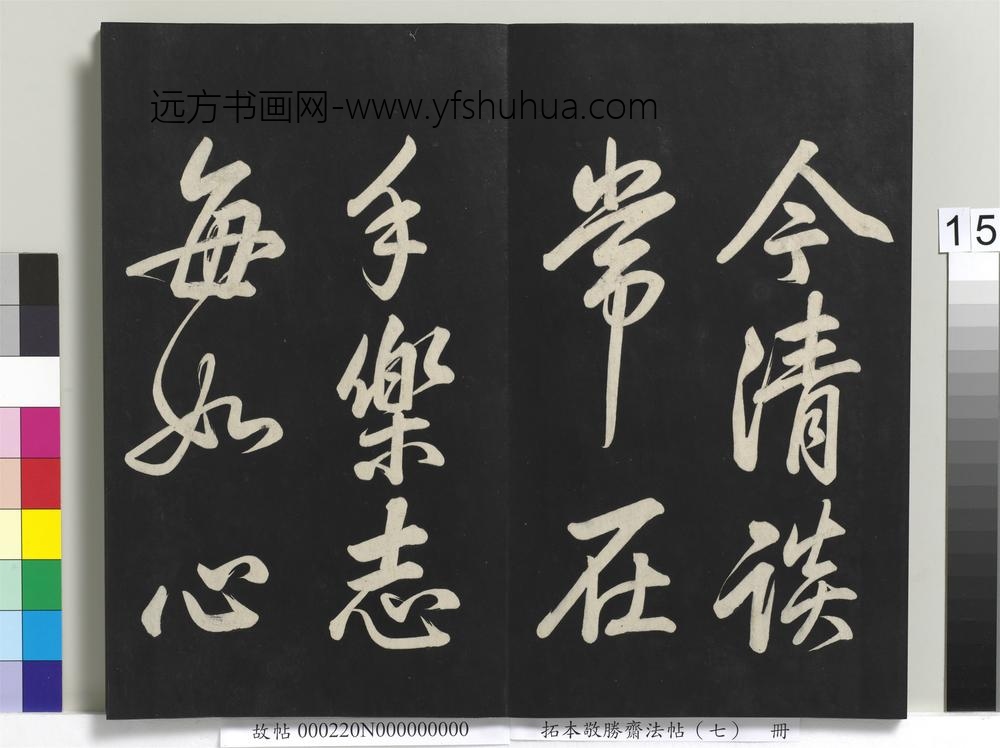 远方书画网-www.yfshuhua.com
今清談
常在
手樂志
每如心
15
故帖 000220N000000000
拓本敬勝齋法帖（七） 冊